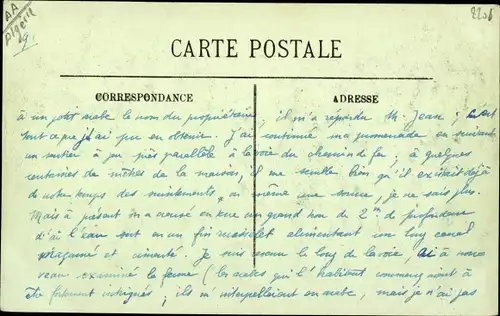 AA
Algérie
CARTE POSTALE
CORRESPONDANCE
ADRESSE
à un petit arabe le nom du propriétaire, il m'a répondu M. Jean ; c'est
tout ce que j'ai pu en obtenir. J'ai continué ma promenade en suivant
un sentier à peu près parallèle à la voie du chemin de fer ; à quelques
centaines de mètres de la maison, il me semble bien qu'il existait déjà
de notre temps des suintements, ou même une source, je ne sais plus.
Mais à présent on a creusé en une un grand trou de 2m de profondeur
d'où l'eau sort en un fin ruisselet alimentant un long canal
maçonné et cimenté. Je suis revenu le long de la voie, ai à nou-
veau examiné la ferme (les arabes qui l'habitent commençaient à
être fortement intrigués, ils m'interpellaient en arabe, mais je n'ai pas